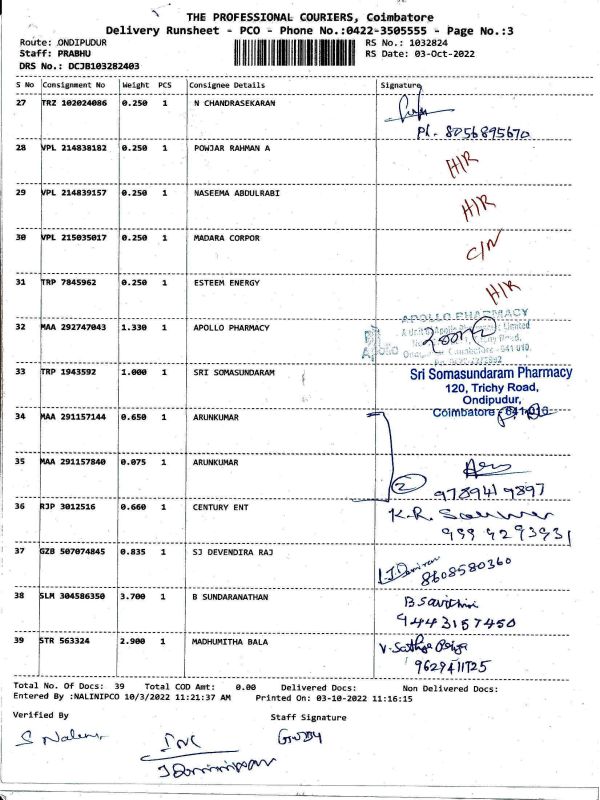 THE PROFESSIONAL COURIERS, Coimbatore
Delivery Runsheet - PCO - Phone No.:0422-3505555 - Page No.:3
Route: ONDIPUDUR RS No.: 1032824
Staff: PRABHU RS Date: 03-Oct-2022
DRS No.: DCJB103282403
S No Consignment No Weight PCS Consignee Details Signature
27 TRZ 102024086 0.250 1 N CHANDRASEKARAN
Ph. 8056895670
28 VPL 214838182 0.250 1 POWJAR RAHMAN A H/R
29 VPL 214839157 0.250 1 NASEEMA ABDULRABI H/R
30 VPL 215035017 0.250 1 MADARA CORPOR C/N
31 TRP 7845962 0.250 1 ESTEEM ENERGY H/R
APOLLO PHARMACY
32 MAA 292747043 1.330 1 APOLLO PHARMACY
33 TRP 1943592 1.000 1 SRI SOMASUNDARAM Sri Somasundaram Pharmacy
120, Trichy Road,
Ondipudur,
Coimbatore - 641 016
34 MAA 291157144 0.650 1 ARUNKUMAR
35 MAA 291157840 0.075 1 ARUNKUMAR
2 9789419897
36 RJP 3012516 0.660 1 CENTURY ENT K.R.
37 GZB 507074845 0.835 1 SJ DEVENDIRA RAJ
8608580360
38 SLM 304586350 3.700 1 B SUNDARANATHAN B Savithri
9443157450
39 STR 563324 2.900 1 MADHUMITHA BALA V. Sathya Priya
Total No. Of Docs: 39 Total COD Amt: 0.00 Delivered Docs: Non Delivered Docs:
Entered By :NALINIPCO 10/3/2022 11:21:37 AM Printed On: 03-10-2022 11:16:15
Verified By Staff Signature